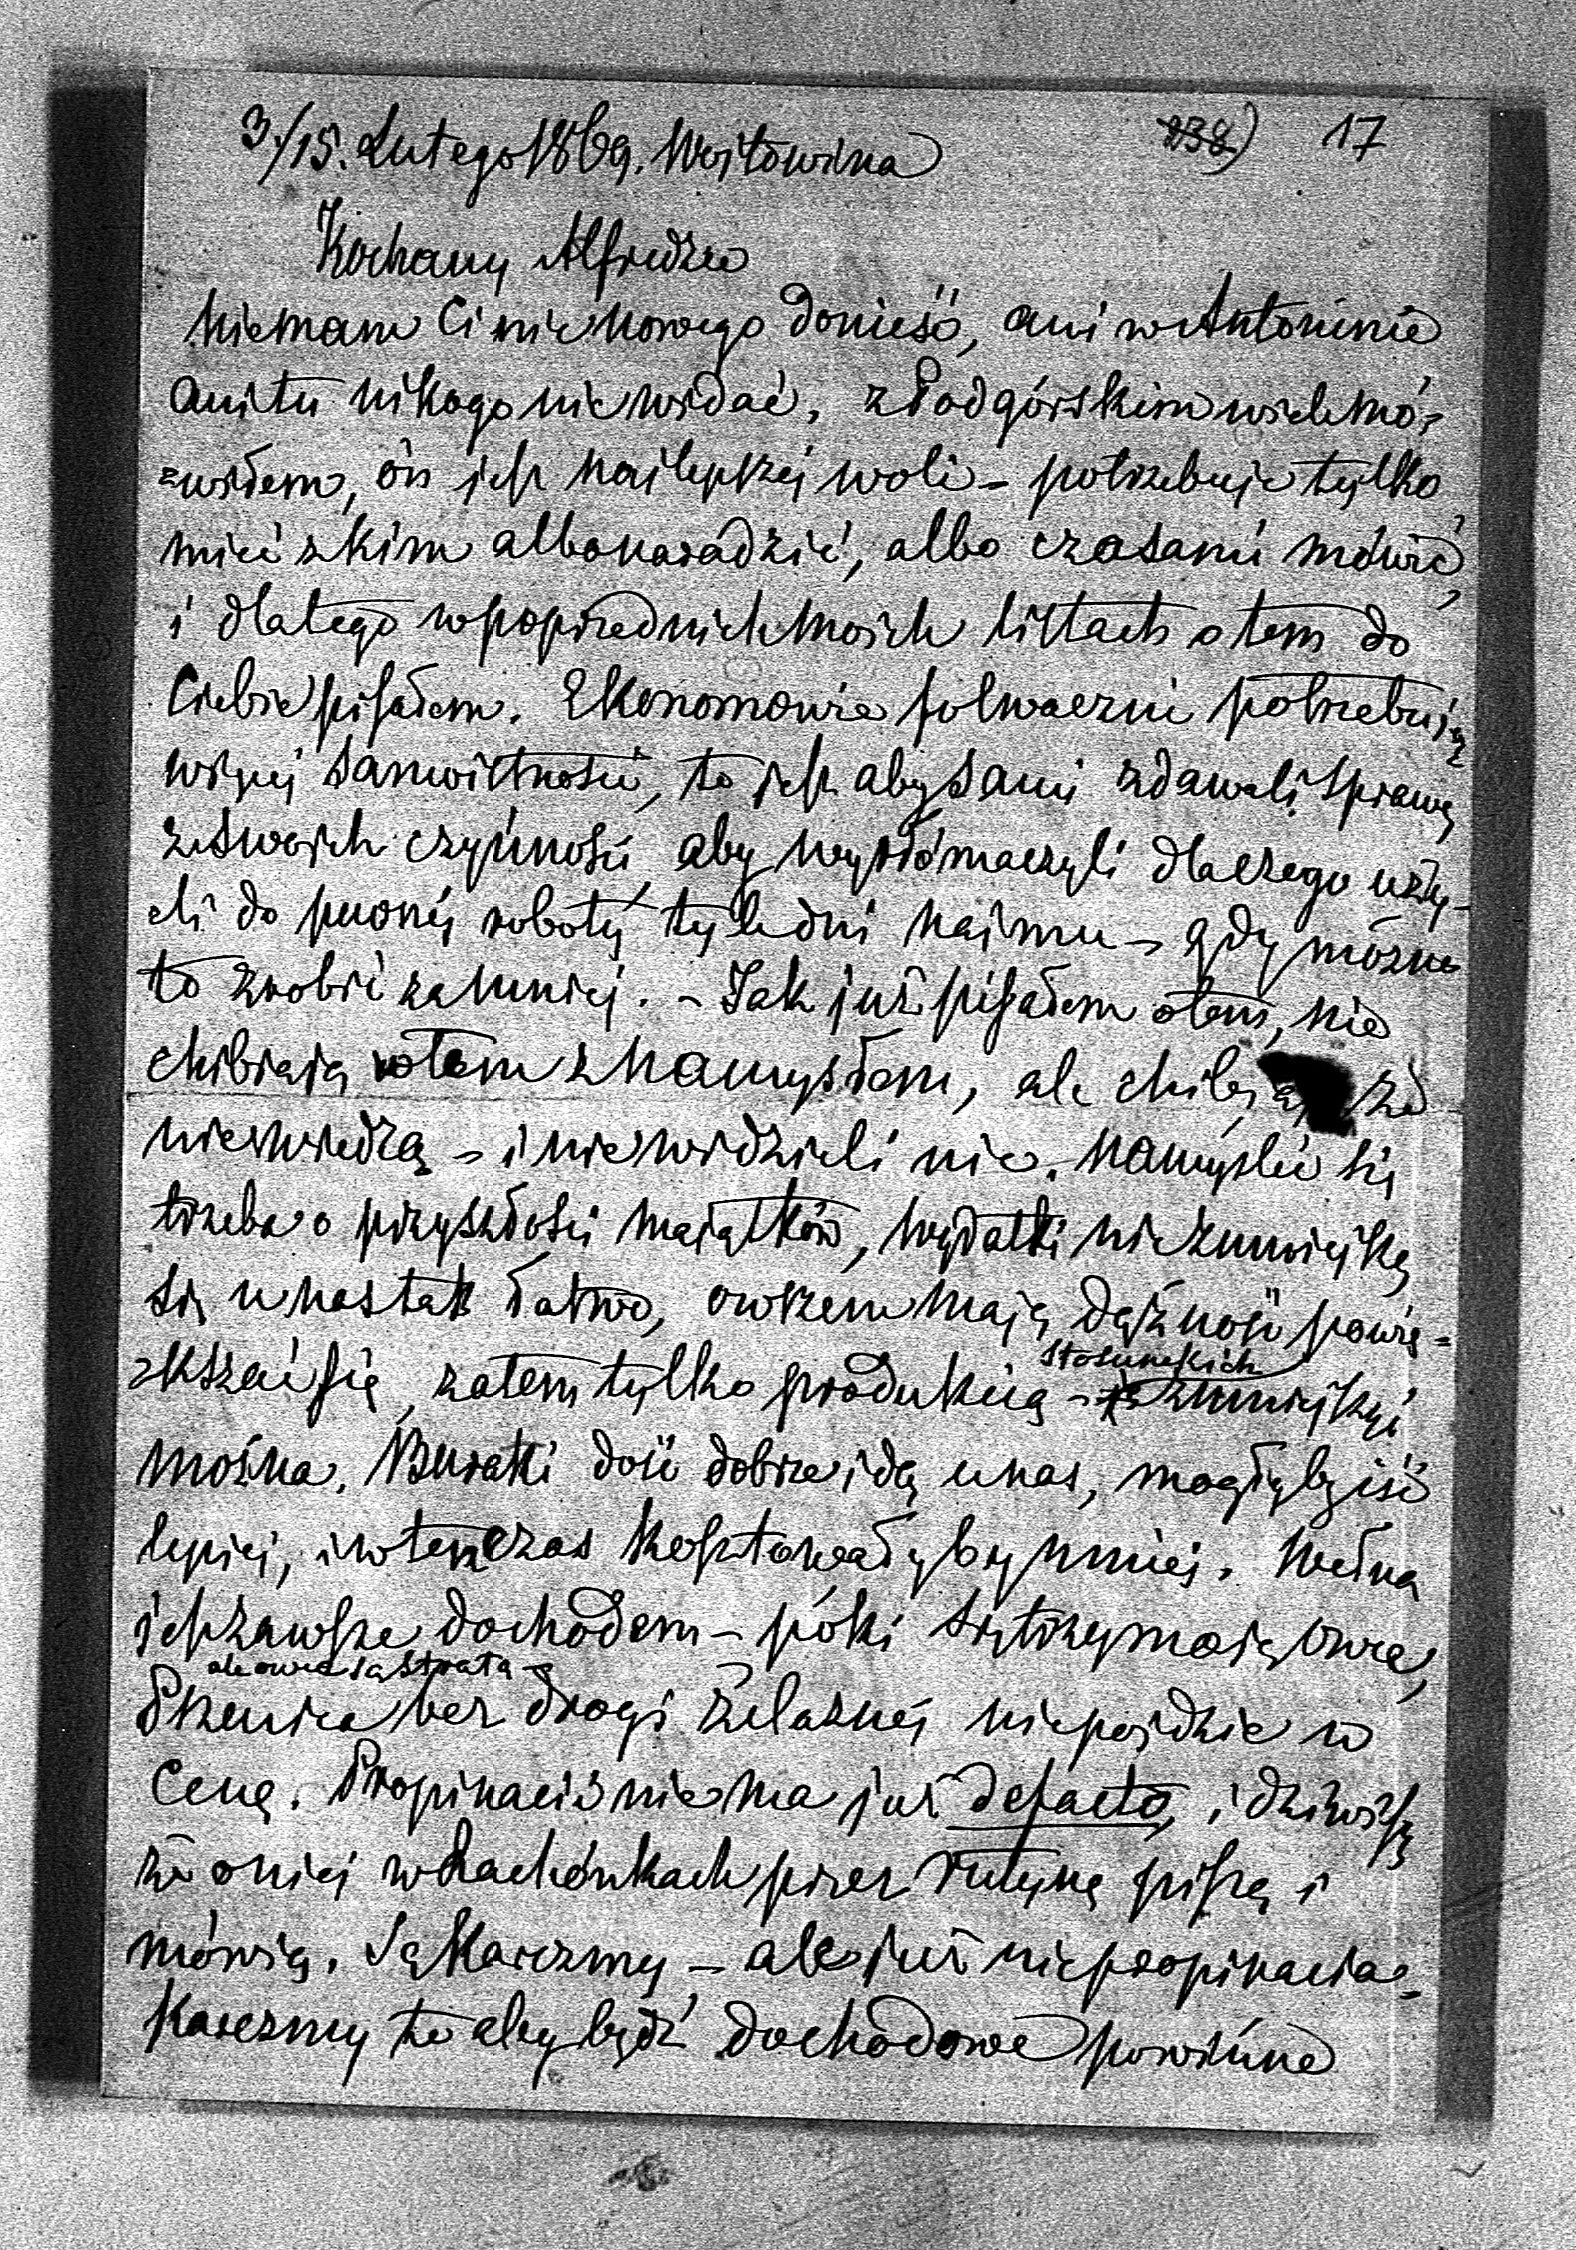 3./15. Lutego 1869. Wojtowina 238) 17
Kochany Alfredzie
Niemam Ci nic nowego donieść, ani w Antoninie
ani tu nikogo nie widać. z Podgórskim wiele mó-
=wiłem, on jest najlepszej woli – potrzebuje tylko
mieć z kim albo naradzić, albo czasami mówić,
i dlatego w poprzednich moich listach o tem do
Ciebie pisałem. Ekonomowie folwarczni potrzebują
więcej samoistności, to jest aby sami zdawali sprawę
ze swoich czynności aby wytłómaczyli dlaczego uży-
eli do pewnéj roboty tyle dni najmu – gdy można
to zrobić za mniej. – Jak już pisałem o tem, nie
chibiają w tem z namysłem, ale chibiają że
niewiedzą – i niewidzieli nic. Namyśleć się
trzeba o przyszłości majątków, wydatki niezmniejszą
się u nas tak łatwo, owszem mają dążność powię=
=kszać się, zatem tylko produkcią – stosunek ich zmniejszyć
można. Buraki dość dobrze idą u nas, mogłyby iść
lepiej, i wtenczas kosztowałyby mniej. Wełna
jest zawsze dochodem – póki się trzymają owce,
ale owce są stratą
Pszenica bez drogi żelaznéj niepójdzie w
Cenę. Propinacii niema już defacto, i dziwię się
że o niej w Rachónkach przez rutynę piszą i
mówią. Są Karczmy – ale już nie propinacia –
Karczmy te aby bydź dochodowe powinne